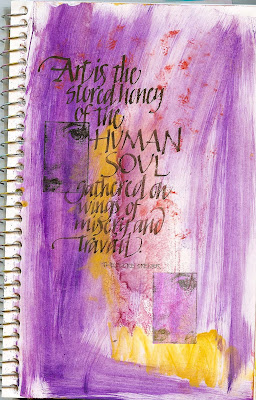 Art is the
stored honey
of the
HUMAN
SOUL
gathered on
wings of
misery and
travail.